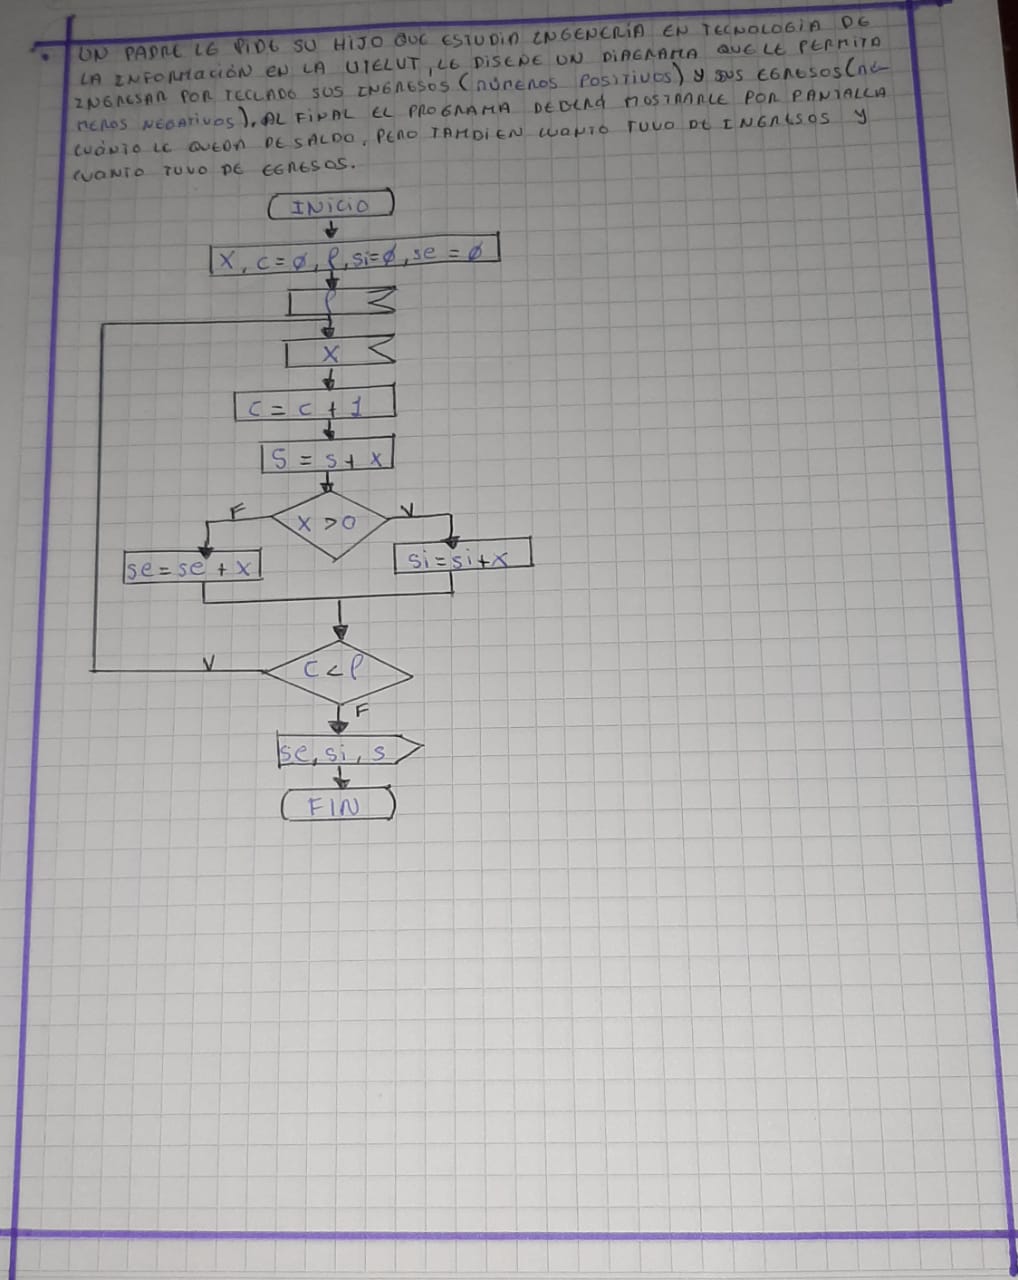 UN PADRE LE PIDE SU HIJO QUE ESTUDIA INGENERIA EN TECNOLOGIA DE
LA INFORMACIÓN EN LA UTELVT, LE DISEÑE UN DIAGRAMA QUE LE PERMITA
INGRESAR POR TECLADO SUS INGRESOS (NÚMEROS POSITIVOS) Y SUS EGRESOS (NÚ-
MEROS NEGATIVOS). AL FINAL EL PROGRAMA DEBERA MOSTRARLE POR PANTALLA
CUÁNTO LE QUEDA DE SALDO, PERO TAMBIEN CUANTO TUVO DE INGRESOS Y
CUANTO TUVO DE EGRESOS.
INICIO
X, C=Ø, P, Si=Ø, se = Ø
P
X
C = C + 1
S = S + X
F
X > 0
V
se = se + X
si = si + x
V
C < P
F
se, si, s
FIN